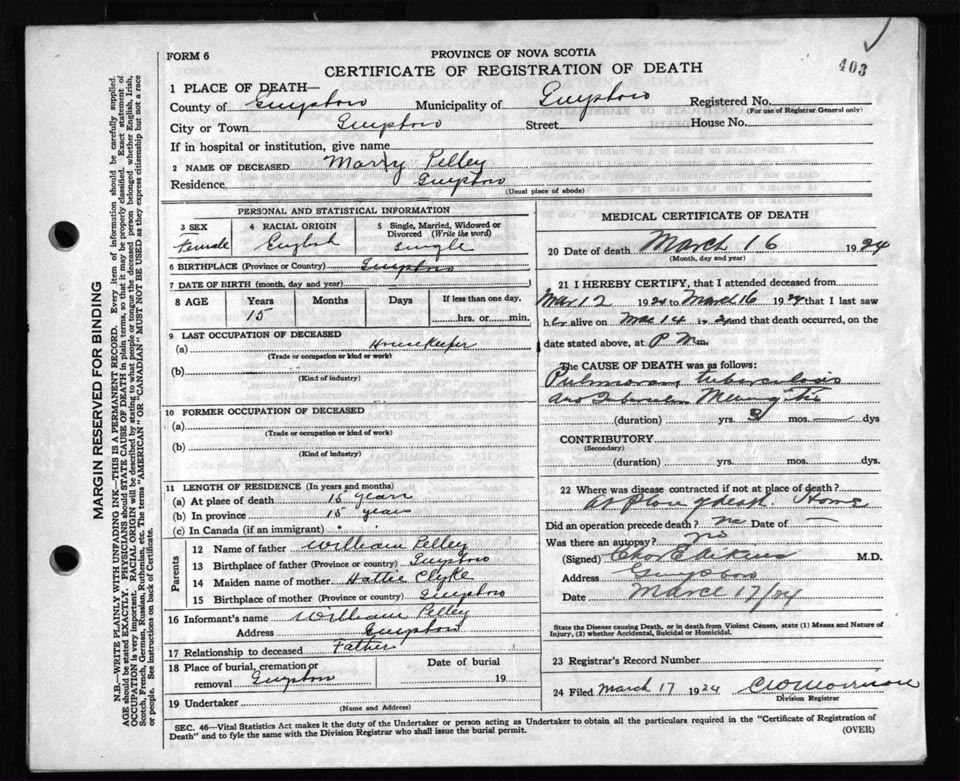 403
FORM 6
PROVINCE OF NOVA SCOTIA
CERTIFICATE OF REGISTRATION OF DEATH
1 PLACE OF DEATH—
County of Guysboro Municipality of Guysboro Registered No.
(For use of Registrar General only)
City or Town Guysboro Street House No.
If in hospital or institution, give name
2 NAME OF DECEASED Marry Pelley
Residence Guysboro
(Usual place of abode)
PERSONAL AND STATISTICAL INFORMATION
3 SEX 4 RACIAL ORIGIN 5 Single, Married, Widowed or Divorced (Write the word)
Female English Single
6 BIRTHPLACE (Province or Country) Guysboro
7 DATE OF BIRTH (month, day and year)
8 AGE Years Months Days If less than one day,
15 hrs. or min.
9 LAST OCCUPATION OF DECEASED
(a) Housekeeper
(Trade or occupation or kind of work)
(b)
(Kind of industry)
10 FORMER OCCUPATION OF DECEASED
(a)
(Trade or occupation or kind of work)
(b)
(Kind of industry)
11 LENGTH OF RESIDENCE (In years and months)
(a) At place of death 15 years
(b) In province 15 years
(c) In Canada (if an immigrant)
Parents
12 Name of father William Pelley
13 Birthplace of father (Province or Country) Guysboro
14 Maiden name of mother Hattie Clyke
15 Birthplace of mother (Province or Country) Guysboro
16 Informant's name William Pelley
Address Guysboro
17 Relationship to deceased Father
18 Place of burial, cremation or removal Guysboro Date of burial 19
19 Undertaker
(Name and Address)
MEDICAL CERTIFICATE OF DEATH
20 Date of death March 16 1924
(Month, day and year)
21 I HEREBY CERTIFY, that I attended deceased from
Mar 12 1924 to March 16 1924 that I last saw
her alive on Mar 14 1924 and that death occurred, on the
date stated above, at P M m.
The CAUSE OF DEATH was as follows:
Pulmonary tuberculosis
and Tubercular Meningitis
(duration) yrs. 3 mos. dys
CONTRIBUTORY
(Secondary)
(duration) yrs. mos. dys.
22 Where was disease contracted if not at place of death?
At Place of death. Home
Did an operation precede death? no Date of —
Was there an autopsy? no
(Signed) Chas E Aikins M.D.
Address Guysboro
Date March 17/24
State the Disease causing Death, or in death from Violent Causes, state (1) Means and Nature of
Injury, (2) whether Accidental, Suicidal or Homicidal.
23 Registrar's Record Number
24 Filed March 17 1924
Division Registrar
SEC. 46—Vital Statistics Act makes it the duty of the Undertaker or person acting as Undertaker to obtain all the particulars required in the "Certificate of Registration of
Death" and to fyle the same with the Division Registrar who shall issue the burial permit. (OVER)
MARGIN RESERVED FOR BINDING
N.B.—WRITE PLAINLY WITH UNFADING INK—THIS IS A PERMANENT RECORD. Every item of information should be carefully supplied.
AGE should be stated EXACTLY. PHYSICIANS should STATE CAUSE OF DEATH in plain terms, so that it may be properly classified. Exact statement of
OCCUPATION is very important. RACIAL ORIGIN will be described by stating to what people or tongue the deceased person belonged whether English, Irish,
Scotch, French, German, Russian, Ruthenian, etc. The terms "AMERICAN" OR "CANADIAN" MUST NOT BE USED as they express citizenship but not a race
or people. See instructions on back of Certificate.